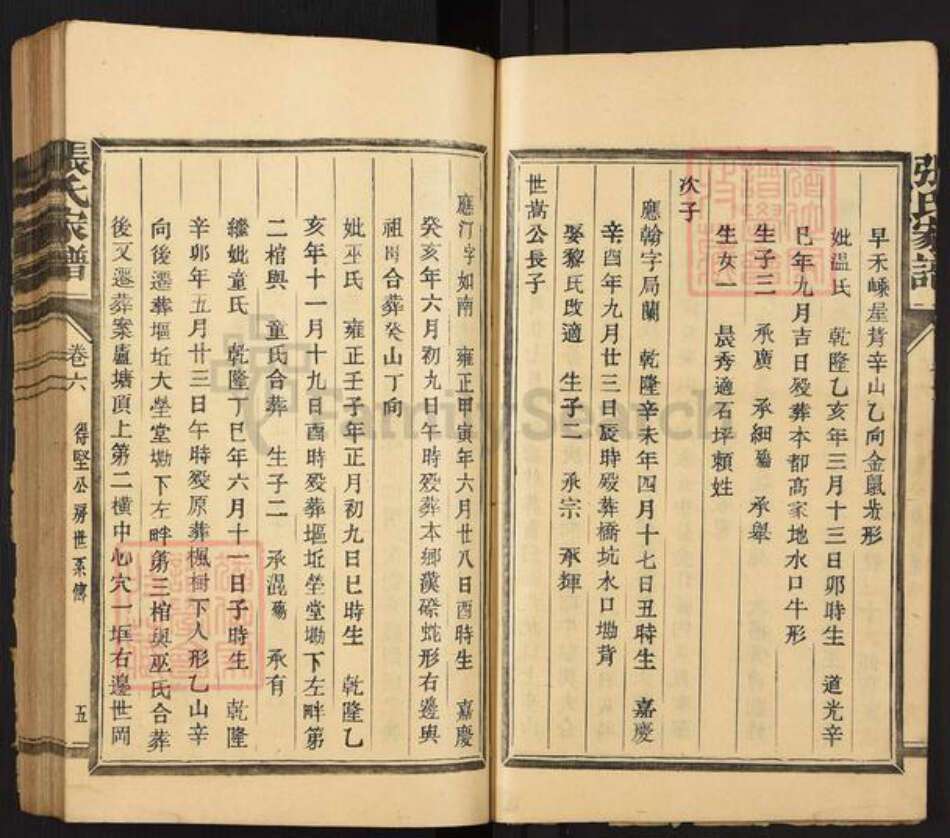 張氏家譜
早禾㟙屋背辛山乙向金鼠形
妣溫氏 乾隆乙亥年三月十三日卯時生 道光辛
巳年九月吉日歿葬本都髙家地水口牛形
生子三 承廣 承細殤 承舉
生女一 晨秀適石坪賴姓
次子
應翰字局蘭 乾隆辛未年四月十七日丑時生 嘉慶
辛酉年九月廿三日辰時歿葬橋坑水口坳背
娶黎氏改適 生子二 承宗 承輝
世嵩公長子
應汀字如南 雍正甲寅年六月廿八日酉時生 嘉慶
癸亥年六月初九日午時歿葬本鄉漢磜蛇形右邊與
祖㒺合葬癸山丁向
妣巫氏 雍正壬子年正月初九日巳時生 乾隆乙
亥年十一月十九日酉時歿葬堀坵塋堂坳下左畔第
二棺與 童氏合葬 生子二 承混殤 承有
繼妣童氏 乾隆丁巳年六月十一日子時生 乾隆
辛卯年五月廿三日午時歿原葬楓樹下人形乙山辛
向後遷葬堀坵大塋堂坳下左畔第三棺與巫氏合葬
後又遷葬案廬塘頂上第二橫中心穴一堀右邊世岡
張氏家譜
卷六
得堅公房世系傳
五
FamilySearch